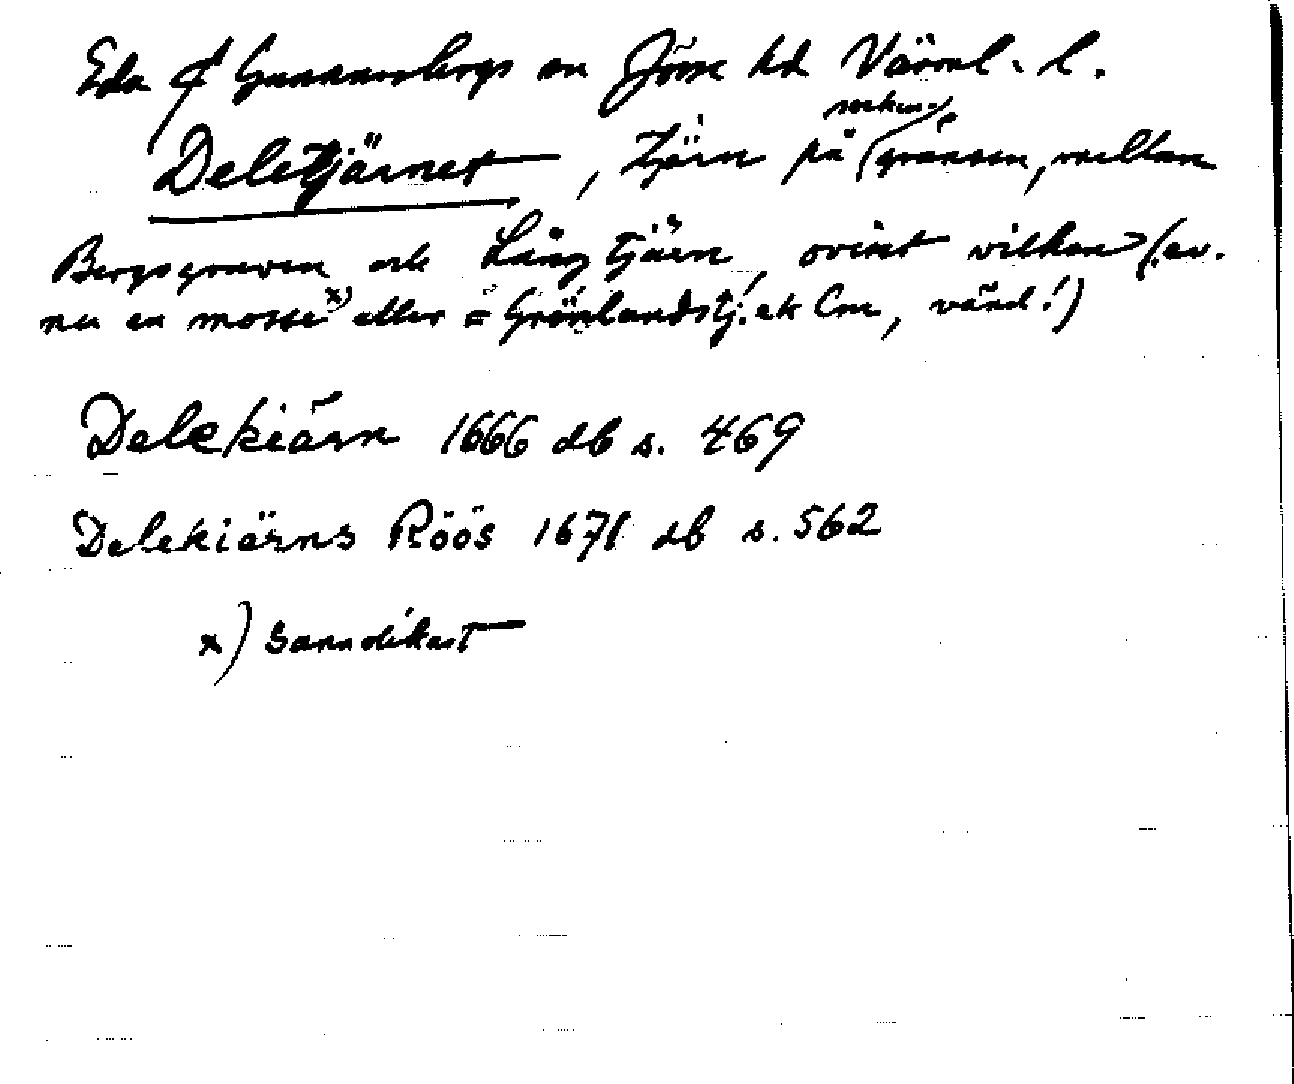 Eda & Gunnarskogs sn Jösse hd Värml. l.
Deletjärnet, tjärn på socken-gränsen, mellan
Bergsgraven och Långtjärn, ovisst vilken (ev.
nu en mosse x) eller = Grönlandstj. ek Cm, värd!)
Delekiärn 1666 db s. 469
Delekiärns Röös 1671 db s. 562
x) sannolikast